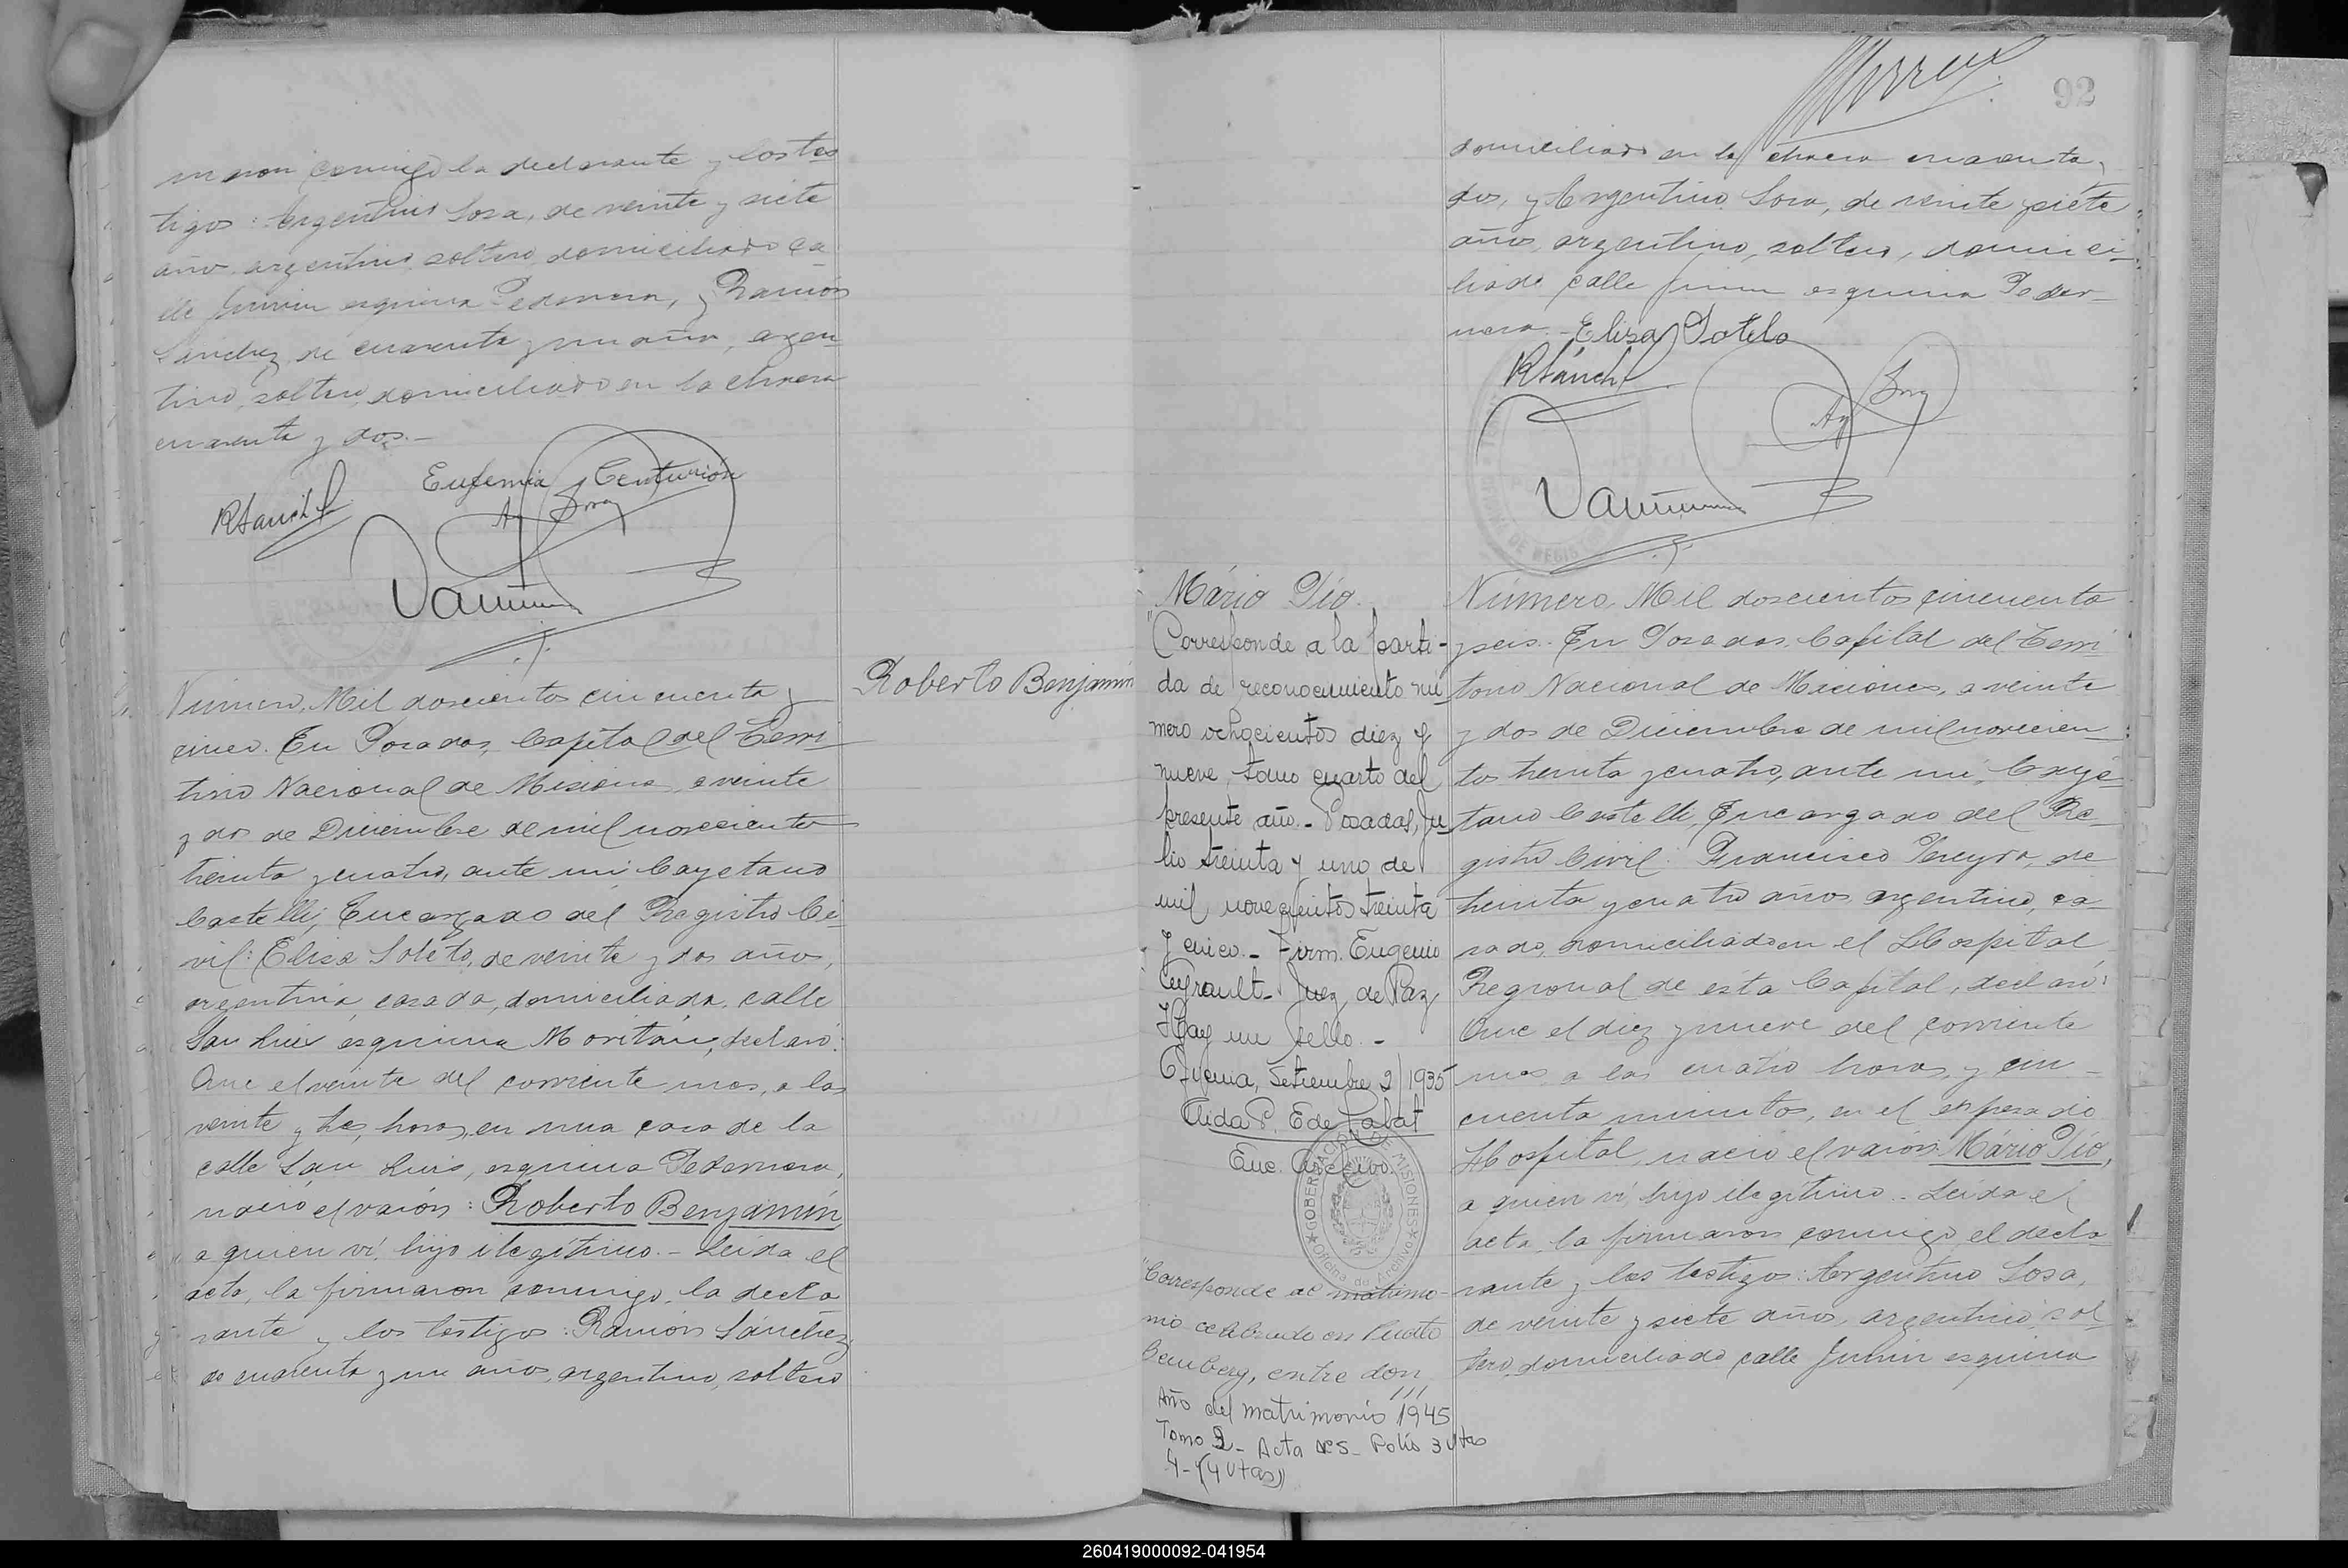 maron conmigo la declarante y los tes
tigos: Argentino Sosa, de veinte y siete
años, argentino, soltero, domiciliado ca
lle Junin esquina Pedernera, y Ramón
Sánchez, de cuarenta y un años, argen
tino, soltero, domiciliado en la chacra
cuarenta y dos.-
Eufemia Centurión
RSánchz
Ag Sosa
Número, Mil doscientos cincuenta y
cinco. En Posadas, Capital del Terri
torio Nacional de Misiones, a veinte
y dos de Diciembre de mil novecientos
treinta y cuatro, ante mi Cayetano
Castelli, Encargado del Registro Ci-
vil: Elisa Sotelo, de veinte y dos años,
argentina, casada, domiciliada, calle
San Luis esquina Moritán, declaró:
Que el veinte del corriente mes, a las
veinte y tres horas, en una casa de la
calle San Luis, esquina Pedernera,
nació el varón: Roberto Benjamín,
a quien ví, hijo ilegítimo.- Leída el
acta, la firmaron conmigo, la decla
rante y los testigos: Ramón Sánchez
de cuarenta y un años, argentino, soltero
Roberto Benjamín
92
domiciliado en la chacra cuarenta y
dos, y Argentino Sosa, de veinte y siete
años, argentino, soltero, domici-
liado calle Junin esquina Peder-
nera.- Elisa Sotelo
RSánchz
Ag Sosa
Mário Pío.
"Corresponde a la parti-
da de reconocimiento nú
mero ochocientos diez y
nueve, tomo cuarto del
presente año.- Posadas, Ju
lio treinta y uno de
mil novecientos treinta
y cinco.- Firm. Eugenio
Juez de Paz,
Hay un sello.-
Setiembre 2/1935
Enc. Archivo
GOBERNACION DE MISIONES
Oficina de Archivo
"Corresponde al matrimo-
nio celebrado en Puerto
Bemberg, entre don
Año del matrimonio 1945
Tomo 2- Acta Nº 5- Folio 3 Vtas
4-(4 Vtas)
Número, Mil doscientos cincuenta
y seis. En Posadas, Capital del Terri
torio Nacional de Misiones, a veinte
y dos de Diciembre de mil novecien-
tos treinta y cuatro, ante mi, Caye-
tano Castelli, Encargado del Re-
gistro Civil: Francisco Pereyra, de
treinta y cuatro años, argentino, ca-
sado, domiciliado en el Hospital
Regional de esta Capital, declaró:
Que el diez y nueve del corriente
mes a las cuatro horas, y cin-
cuenta minutos, en el expresado
Hospital, nació el varón: Mário Pío,
a quien ví, hijo ilegítimo.- Leída el
acta, la firmaron conmigo, el decla-
rante y los testigos: Argentino Sosa,
de veinte y siete años, argentino, sol
tero, domiciliado calle Junin esquina
260419000092-041954